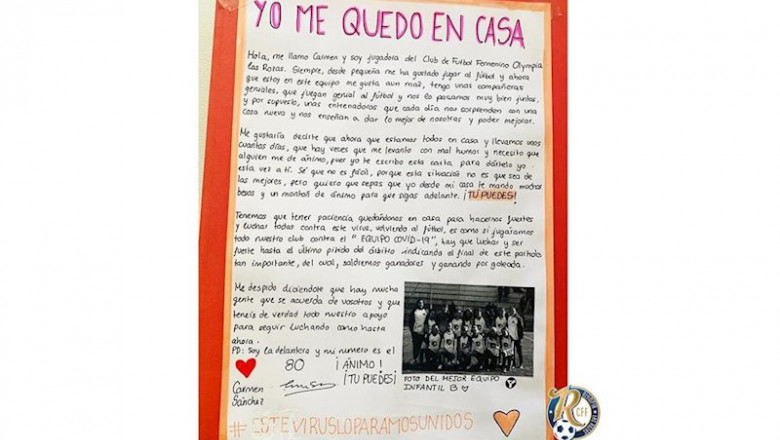 YO ME QUEDO EN CASA
Hola, me llamo Carmen y soy jugadora del Club de Futbol Femenino Olympia
las Rozas. Siempre, desde pequeña me ha gustado jugar al fútbol y ahora
que estoy en este equipo me gusta aun maś, tengo unas compañeras
geniales, que juegan genial al fútbol y nos lo pasamos muy bien juntas,
y por supuesto, unas entrenadoras que cada día nos sorprenden con una
cosa nueva y nos enseñan a dar lo mejor de nosotras y poder mejorar.
Me gustaría decirte que ahora que estamos todos en casa y llevamos unos
cuantos días, que hay veces que me levanto con mal humor y necesito que
alguien me de ánimo, pues yo te escribo esta carta para dártelo yo
esta vez a tí. Sé que no es fácil, porque esta situación no es que sea de
las mejores, pero quiero que sepas que yo desde mi casa te mando muchos
besos y un montón de ánimo para que sigas adelante. ¡TÚ PUEDES!
Tenemos que tener paciencia, quedándonos en casa para hacernos fuertes
y luchar todas contra este virus, volviendo al fútbol, es como si jugáramos
todo nuestro club contra el "EQUIPO COVID-19", hay que luchar y ser
fuerte hasta el último pitido del árbitro indicando el final de este partido
tan importante, del cual, saldremos ganadores y ganando por goleada.
Me despido diciendote que hay mucha
gente que se acuerda de vosotros y que
teneís de verdad todo nuestro apoyo
para seguir luchando como hasta
ahora.
PD: Soy la delantera y mi número es el
80
¡ÁNIMO!
¡TU PUEDES!
Carmen
Sánchez
FOTO DEL MEJOR EQUIPO
INFANTIL B
#ESTEVIRUSLOPARAMOSUNIDOS
R
CFF